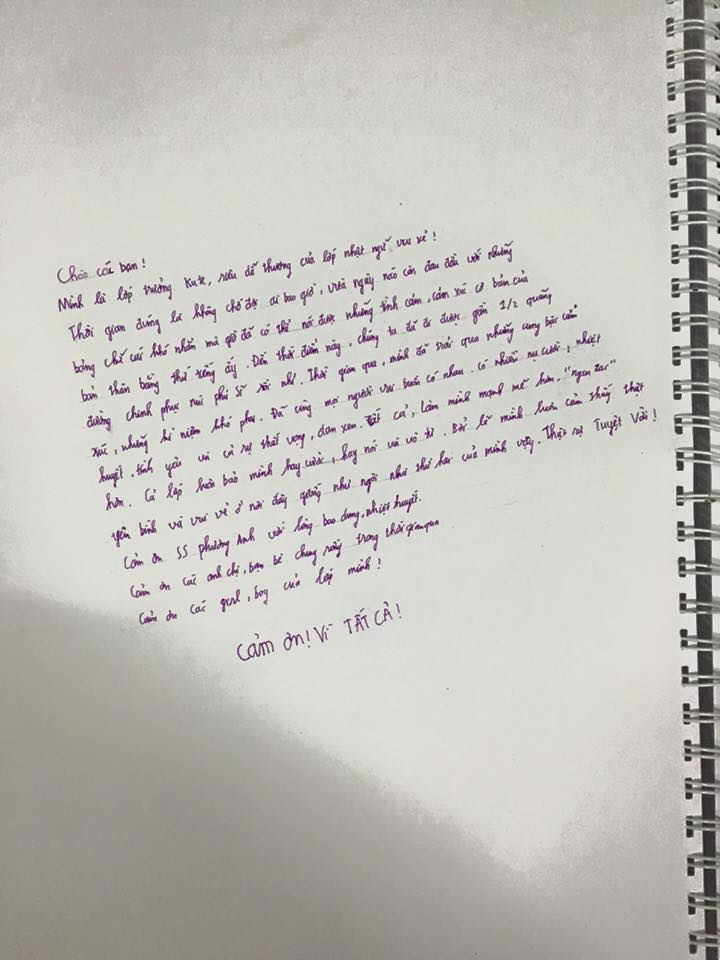 Chào các bạn!
Mình là lớp trưởng kute, siêu dễ thương của lớp nhật ngữ vui vẻ!
Thời gian đúng là không chờ đợi ai bao giờ, vừa ngày nào còn đau đầu với những
bảng chữ cái khó nhằn mà giờ đã có thể nói được những tình cảm, cảm xúc cơ bản của
bản thân bằng thứ tiếng ấy. Đến thời điểm này, chúng ta đã đi được gần 1/2 quãng
đường chinh phục núi phú sĩ rồi nhỉ. Thời gian qua, mình đã trải qua những cung bậc cảm
xúc, những kỉ niệm khó phai. Đã cùng mọi người vui buồn có nhau. có nhiều nụ cười, nhiệt
huyết, tình yêu và cả sự thất vọng, đan xen. Tất cả, làm mình mạnh mẽ hơn, "ngan zar"
hơn. Cả lớp luôn bảo mình hay cười, hay nói và vô tư. Bởi lẽ mình luôn cảm thấy thật
yên bình và vui vẻ ở nơi đây giống như ngôi nhà thứ hai của mình vậy. Thật sự Tuyệt Vời!
Cảm ơn SS phương Anh với lòng bao dung, nhiệt huyết.
Cảm ơn các anh chị, bạn bè chung trong thời gian qua
Cảm ơn các girl, boy của lớp mình!
Cảm ơn! Vì TẤT CẢ!